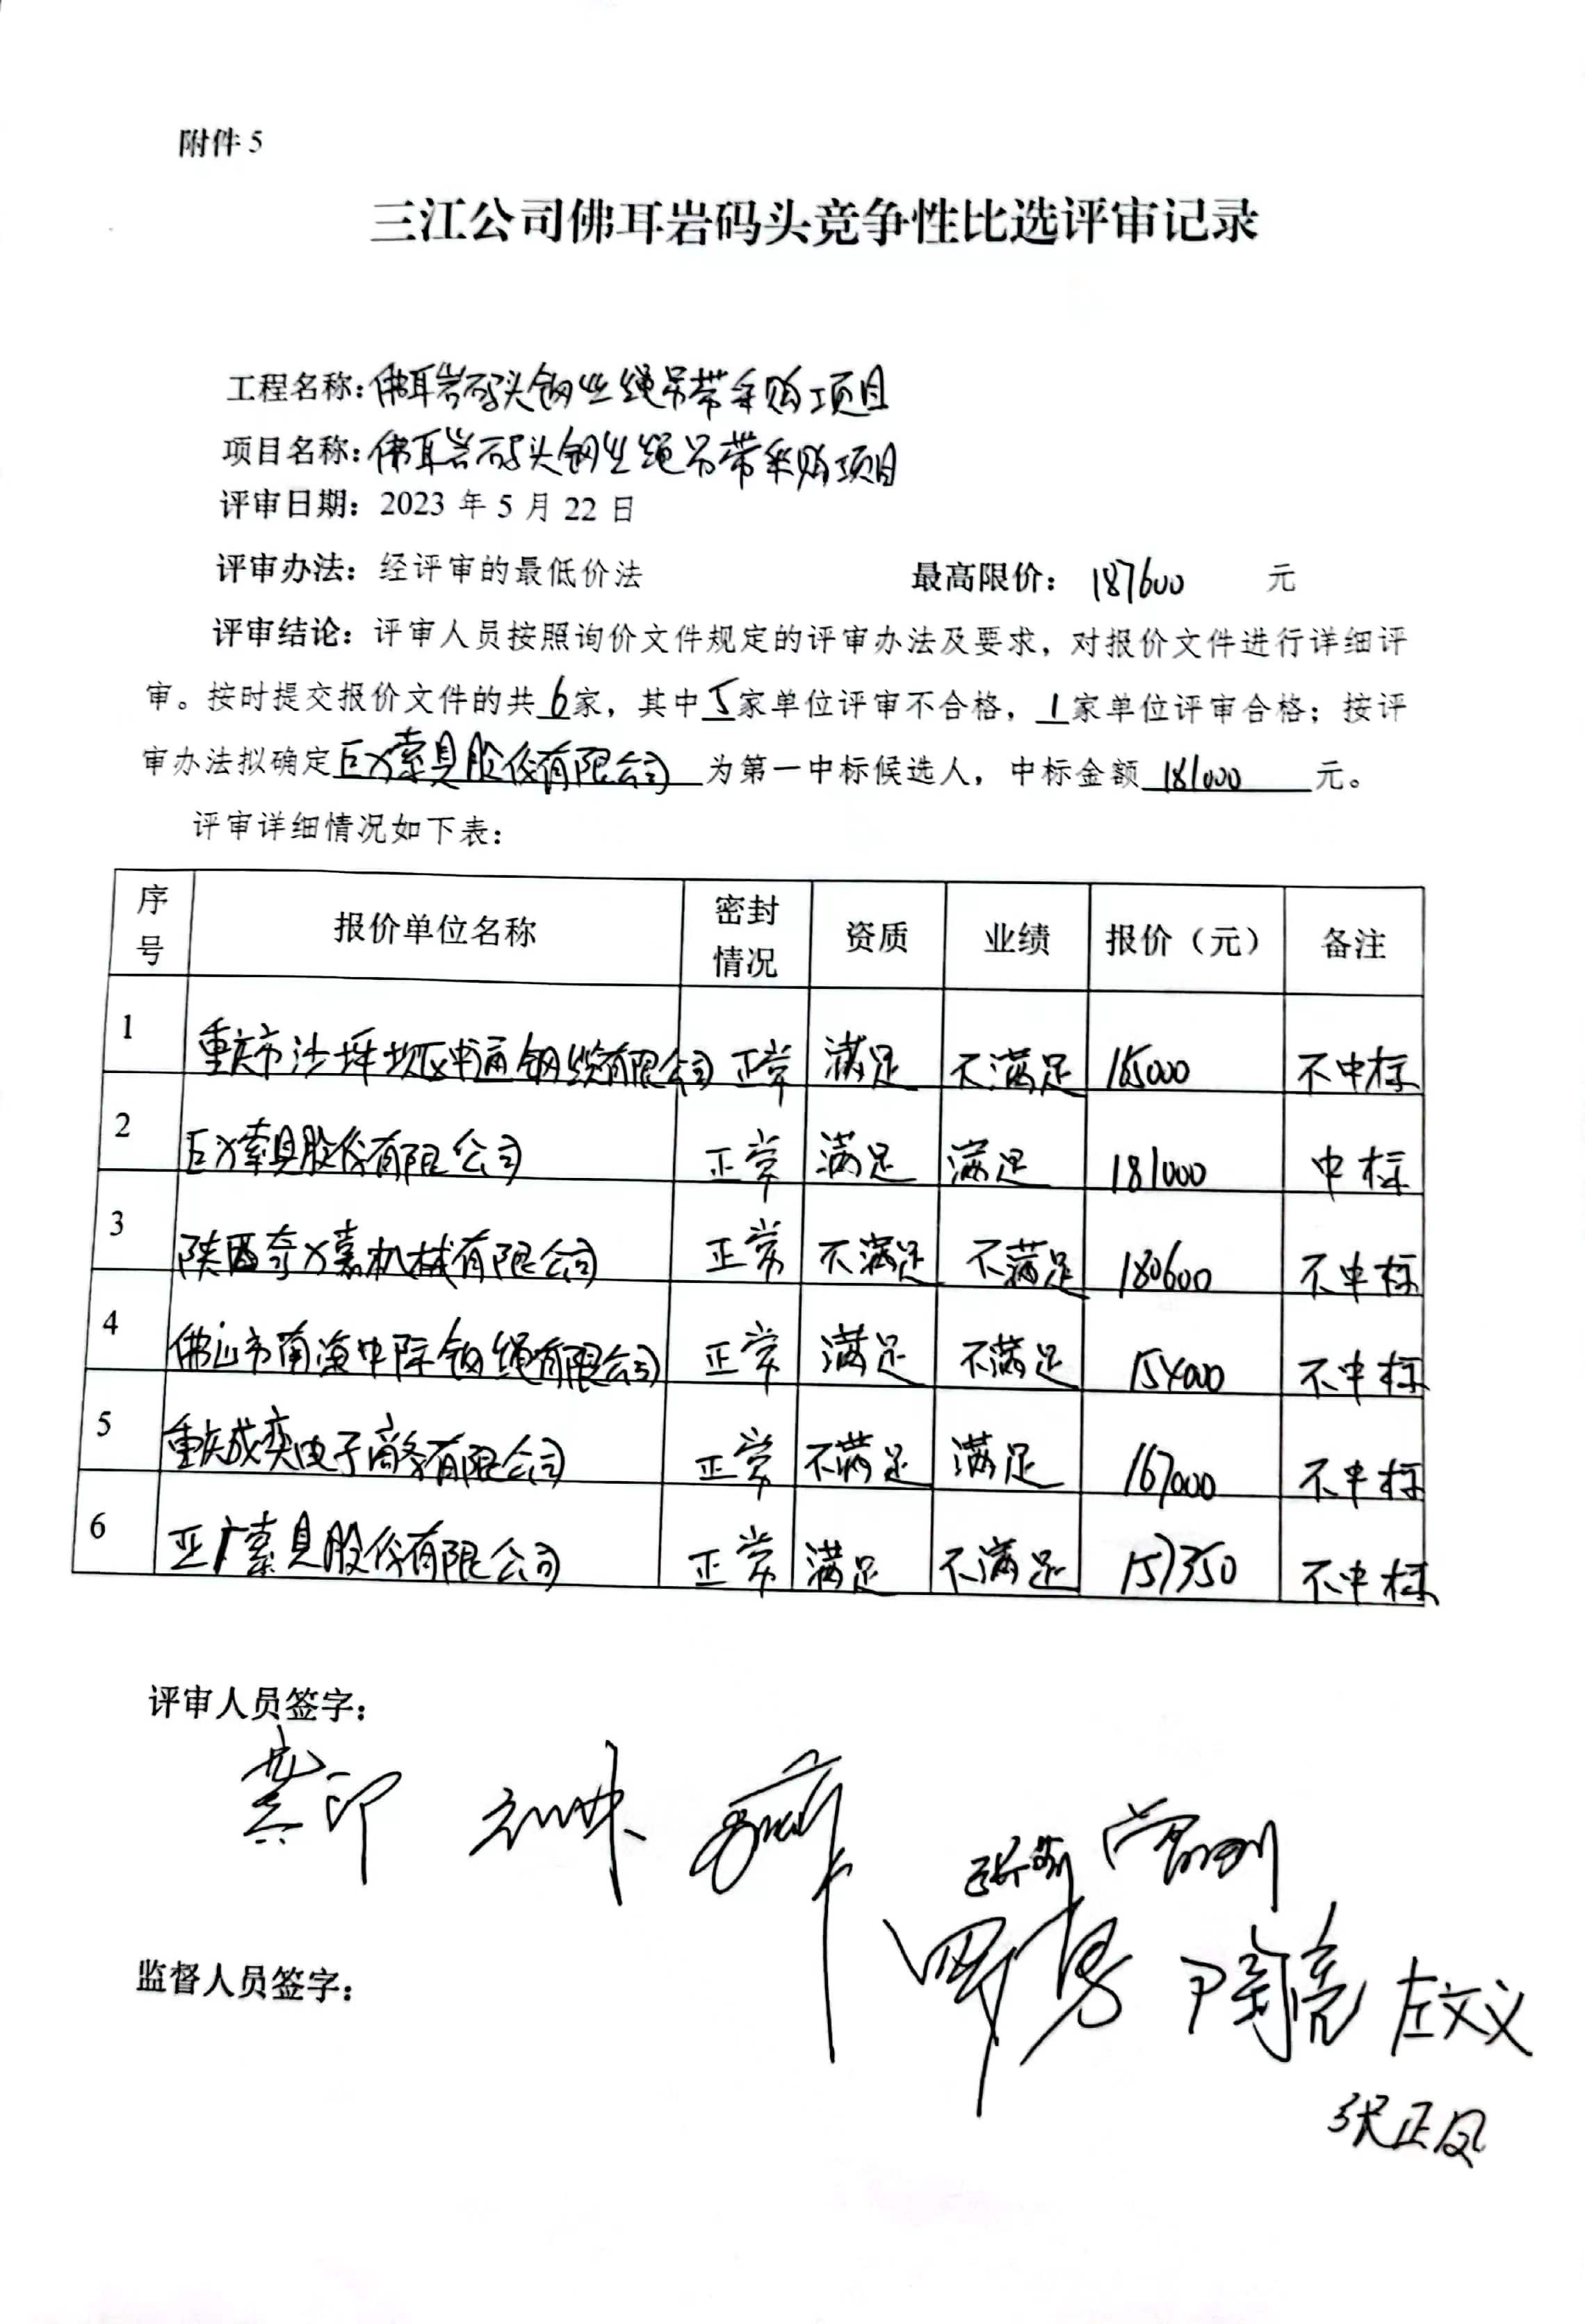 附件 5
三江公司佛耳岩码头竞争性比选评审记录
工程名称：佛耳岩码头钢丝绳吊带采购项目
项目名称：佛耳岩码头钢丝绳吊带采购项目
评审日期：2023 年 5 月 22 日
评审办法：经评审的最低价法 最高限价： 187600 元
评审结论：评审人员按照询价文件规定的评审办法及要求，对报价文件进行详细评
审。按时提交报价文件的共 6 家，其中 5 家单位评审不合格， 1 家单位评审合格；按评
审办法拟确定巨力索具股份有限公司 为第一中标候选人，中标金额 181000 元。
评审详细情况如下表：
序号 报价单位名称 密封情况 资质 业绩 报价（元） 备注
1 重庆市沙坪坝区申通钢缆有限公司 正常 满足 不满足 不中标
2 巨力索具股份有限公司 正常 满足 满足 181000 中标
3 陕西奇力嘉机械有限公司 正常 不满足 不满足 180600 不中标
4 佛山市南海中际钢绳有限公司 正常 满足 不满足 154000 不中标
5 重庆成奕电子商务有限公司 正常 不满足 满足 167000 不中标
6 亚广索具股份有限公司 正常 满足 不满足 157350 不中标
评审人员签字：
龚印
监督人员签字：
罗勇 尹陶亮 左文义
张正凤